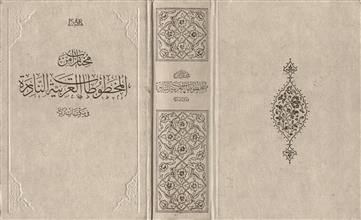 مختارات من
المخطوطات العربية النادرة
في مكتبات تركيا
مختارات من
المخطوطات العربية النادرة